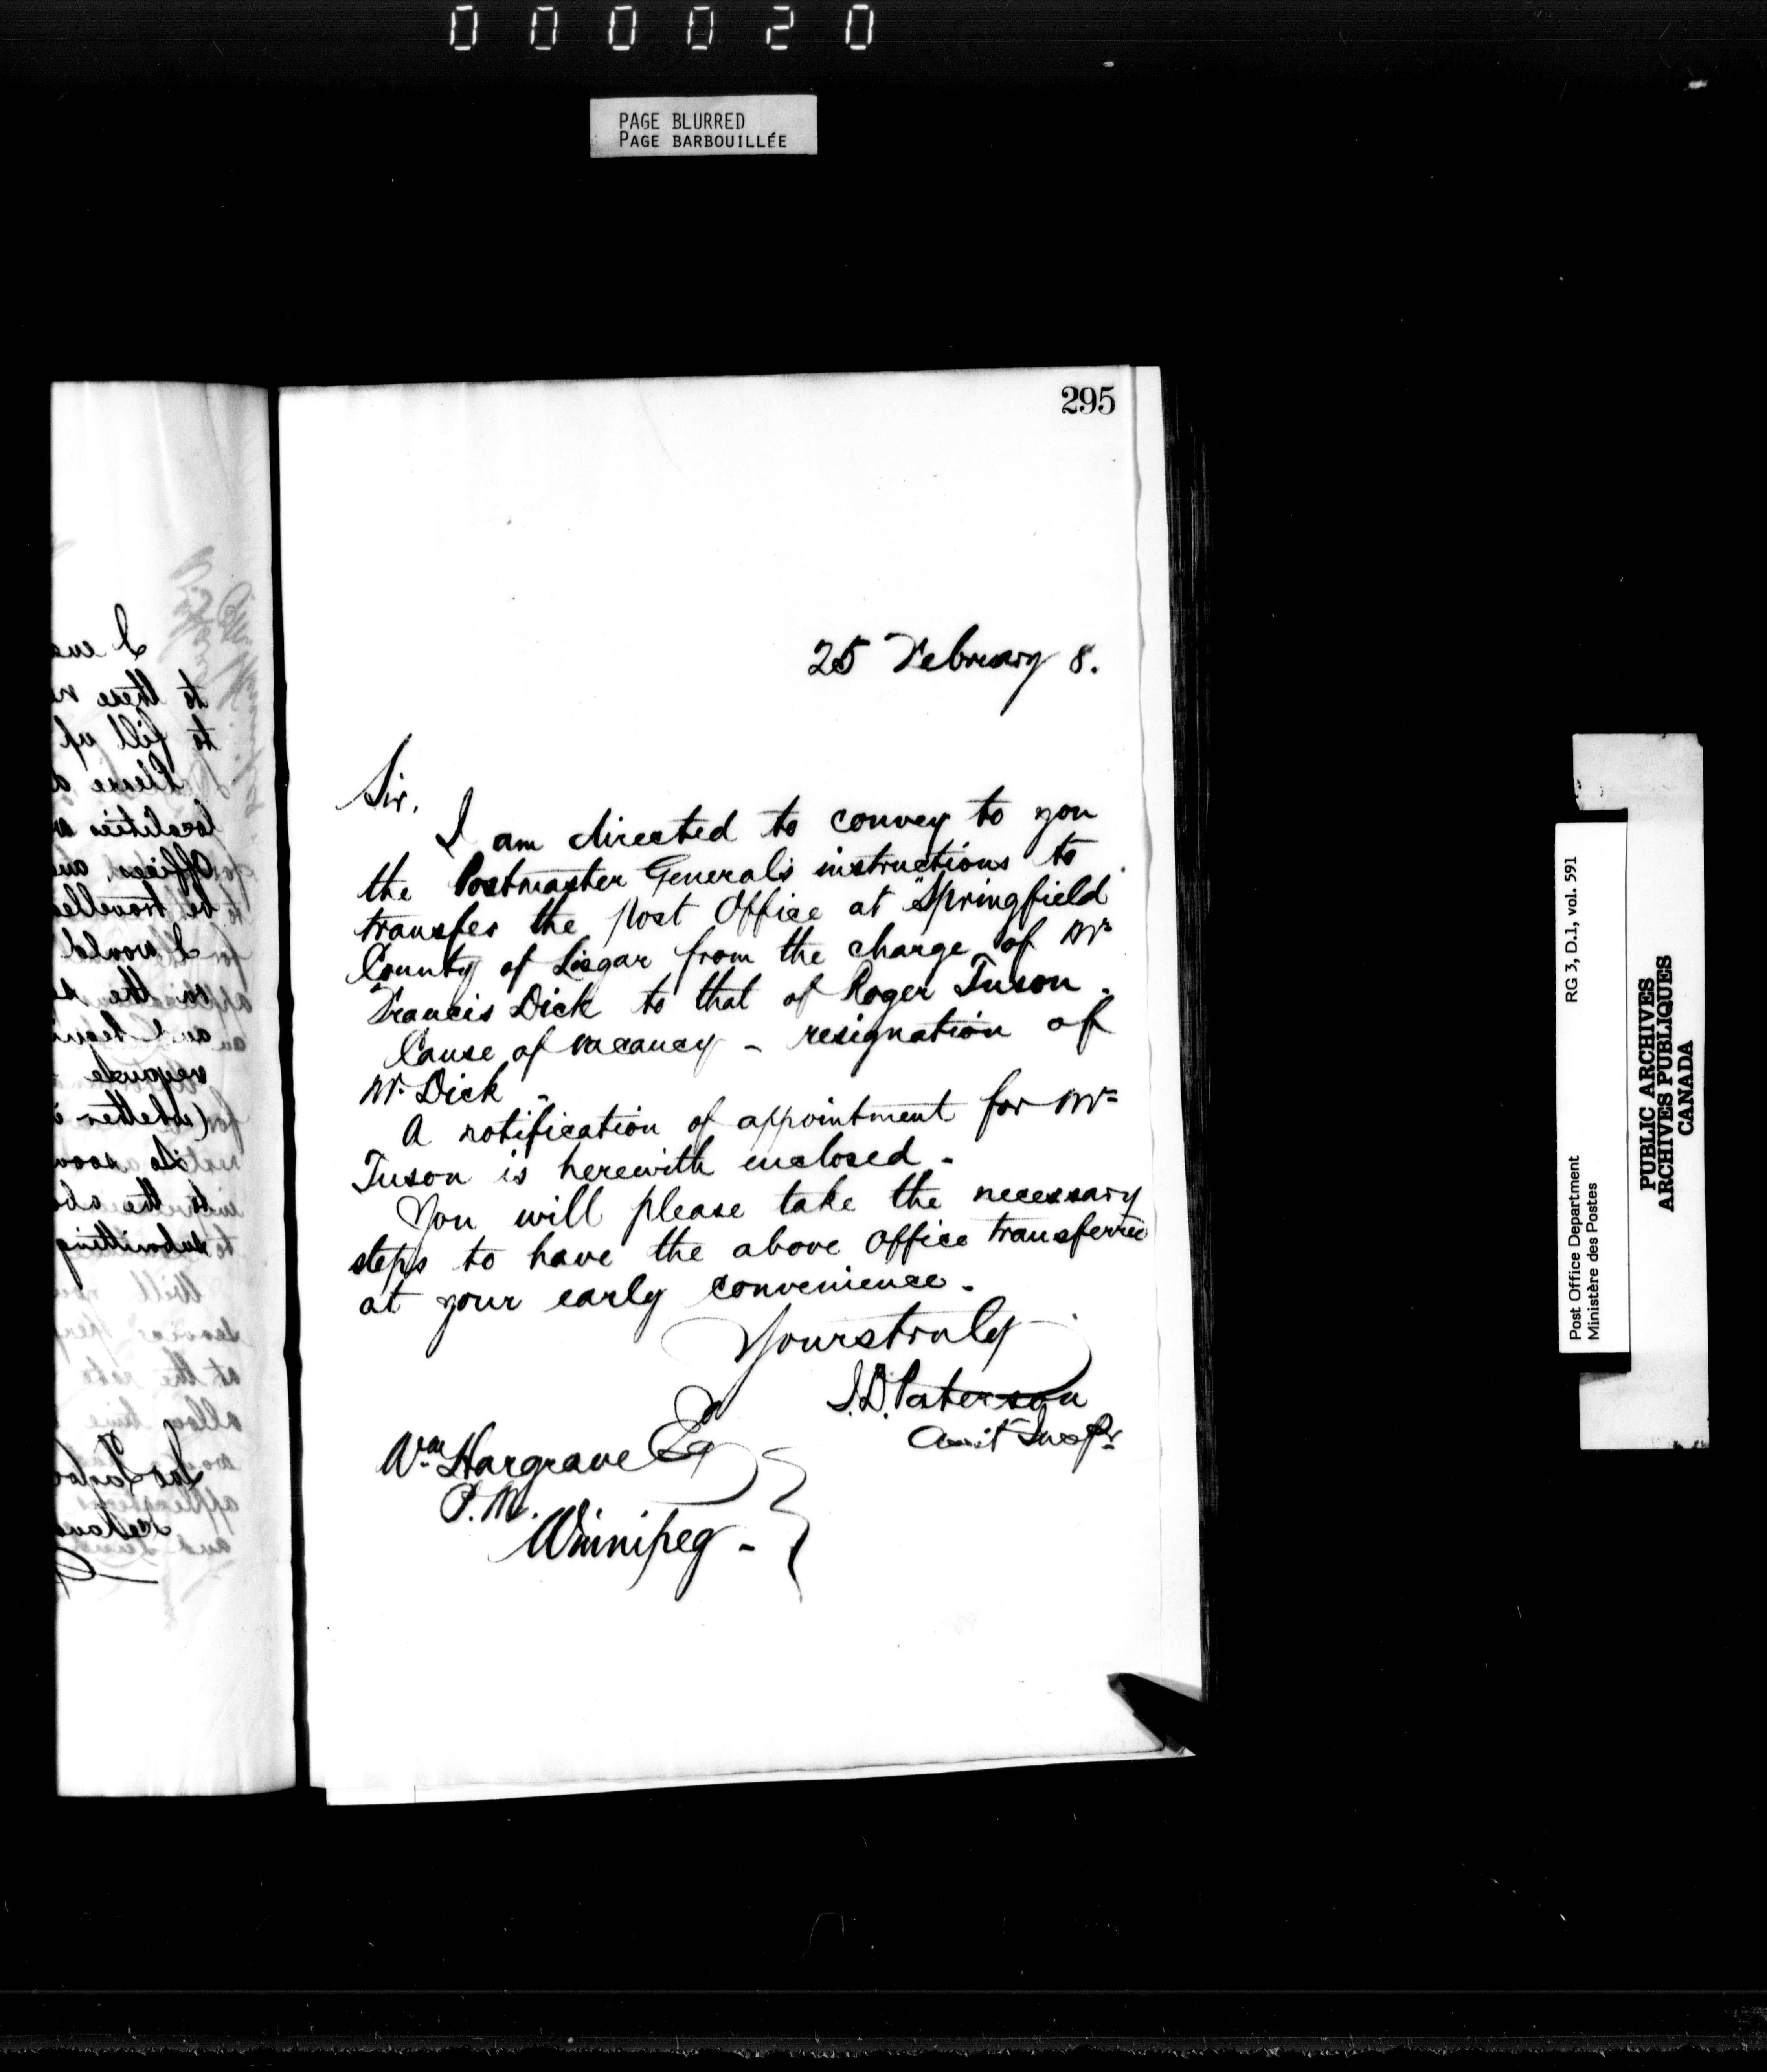 000020
PAGE BLURRED
PAGE BARBOUILLÉE
295
25 February 8.
Sir,
I am directed to convey to you
the Postmaster General's instructions to
transfer the post Office at "Springfield"
County of Lisgar from the charge of Mr
Francis Dick to that of Roger Tuson.
Cause of vacancy - resignation of
Mr Dick -
A notification of appointment for Mr
Tuson is herewith enclosed -
You will please take the necessary
steps to have the above Office transferred
at your early convenience -
Yours truly
J.D. Paterson
Assit Inspr
Wm Hargrave Eq
P.M.
Winnipeg -
RG 3, D.1, vol. 591
Post Office Department
Ministère des Postes
PUBLIC ARCHIVES
ARCHIVES PUBLIQUES
CANADA